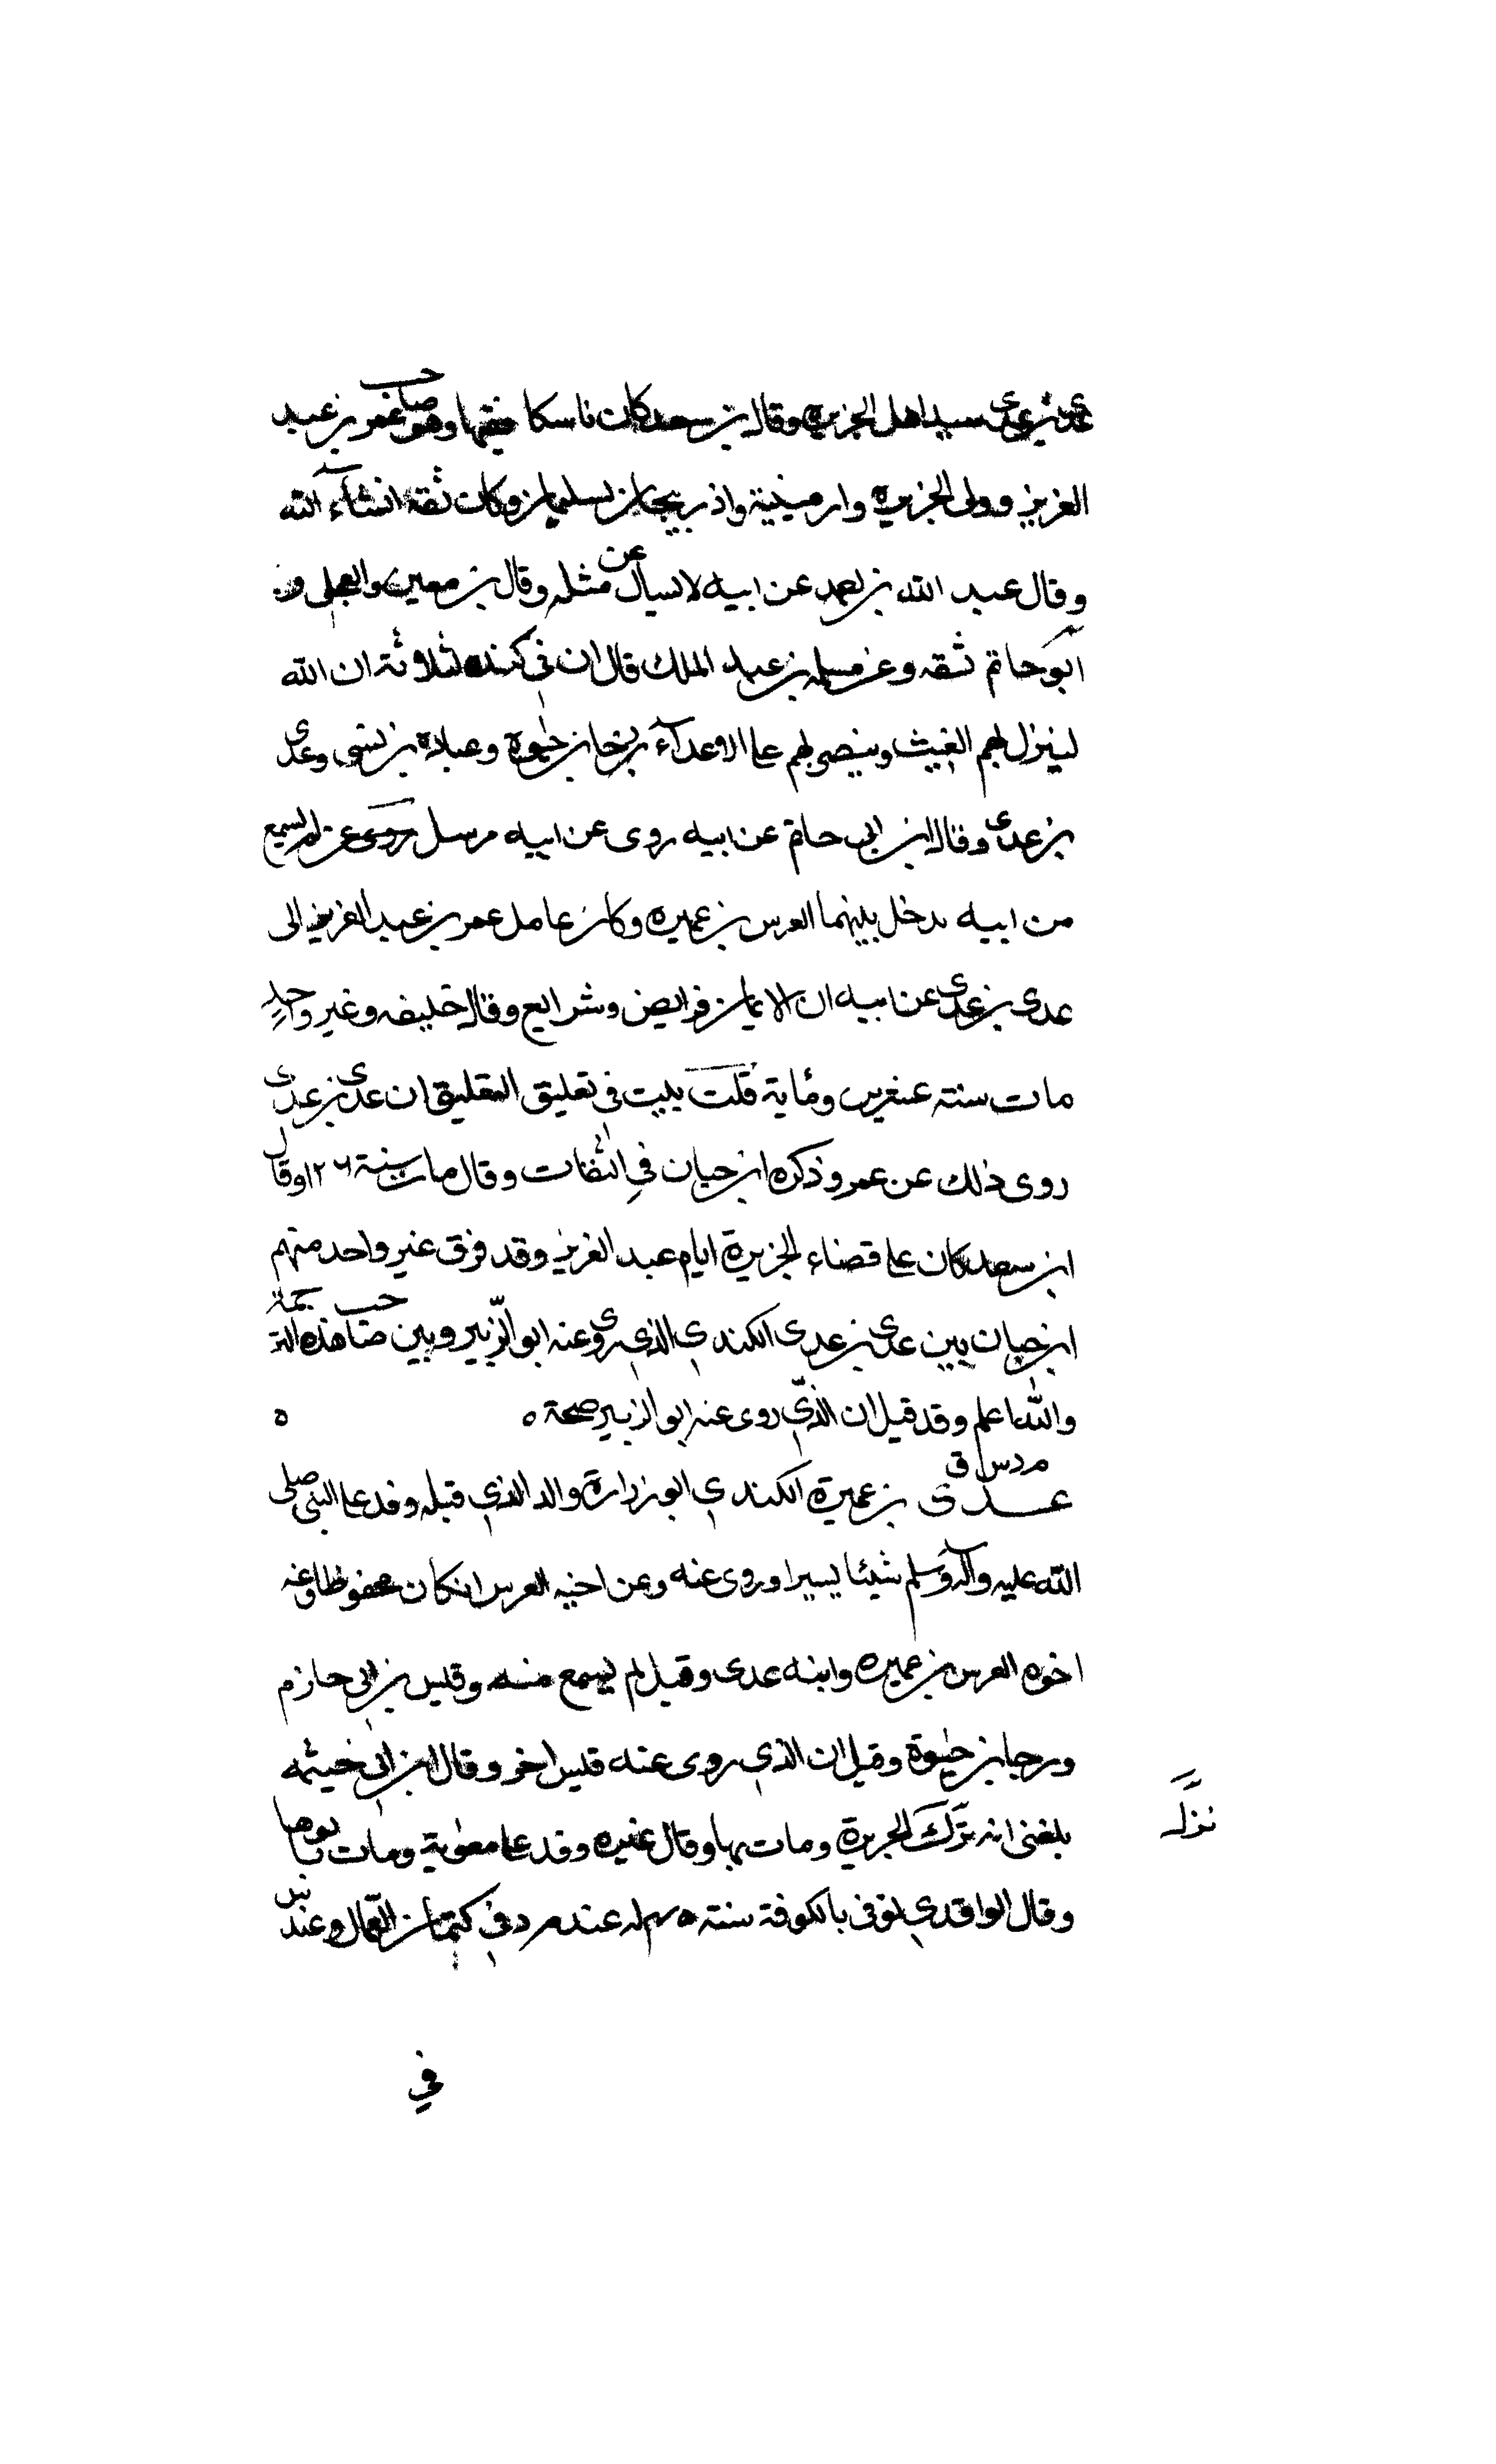 عدى بن عدى سيد اهل الجزيرة وقال بن سعد كان ناسكا فقيها وهو صاحب عمر بن عبد
العزيز وولى الجزيرة وارمينية واذربيجان لسليمان وكان ثقة انشآء الله
وقال عبد الله بن احمد عن ابيه لا يسأل عن مثله وقال بن معين والعجلى و
ابو حاتم ثقه وعن مسلمه بن عبد الملك قال ان فى كنده لثلاثة ان الله
لينزل لهم الغيث وينصر لهم على الاعدآء رجا بن حيوة وعبادة بن نسى وعدى
بن عدى وقال ابن ابى حاتم عن ابيه روى عن ابيه مرسل روى عن لم يسمع
من ابيه يدخل بينهما العرس بن عميره وكان عامل عمر بن عبد العزيز الى
عدى بن عدى عن ابيه ان الايمان فرايض وشرايع وقال خليفه وغير واحد
مات سنته عشرين ومأية قلت بينت فى تعليق التعليق ان عدى بن عدى
روى ذلك عن عمر وذكره ابن حبان فى الثقات وقال مات سنة ١٢٦ وقال
ابن سعد كان على قضاء الجزيرة ايام عبد العزيز وقد فرق غير واحد منهم
ابن حبان بين عدى بن عدى الكندى الذى روى عنه ابو الزّبير وبين صاحب هذه الترجمة
والله اعلم وقد قيل ان الذى روى عنه ابو الزبير صحة ه ه
م د س ق
عدى بن عميرة الكندى ابو زرارة والد الذى قبله وفد على النبى صلى
الله عليه وآله وسلم شيئا يسيرا وروى عنه وعن اخيه العرس انكان محفوظا وعنه
اخوه العرس بن عميره وابنه عدى وقيل لم يسمع منه وقيس بن ابى حازم
ورجا بن حيوة وقيل ان الذى روى عنه قيس اخر وقال ابن ابى خيثمه
بلغنى انه ترك الجزيرة ومات بها وقال غيره وفد على معوية ومات بالرها
نزل
وقال الواقدى توفى بالكوفة سنته ٤٥ له عند م د فى كتمان العمال وعند س
في